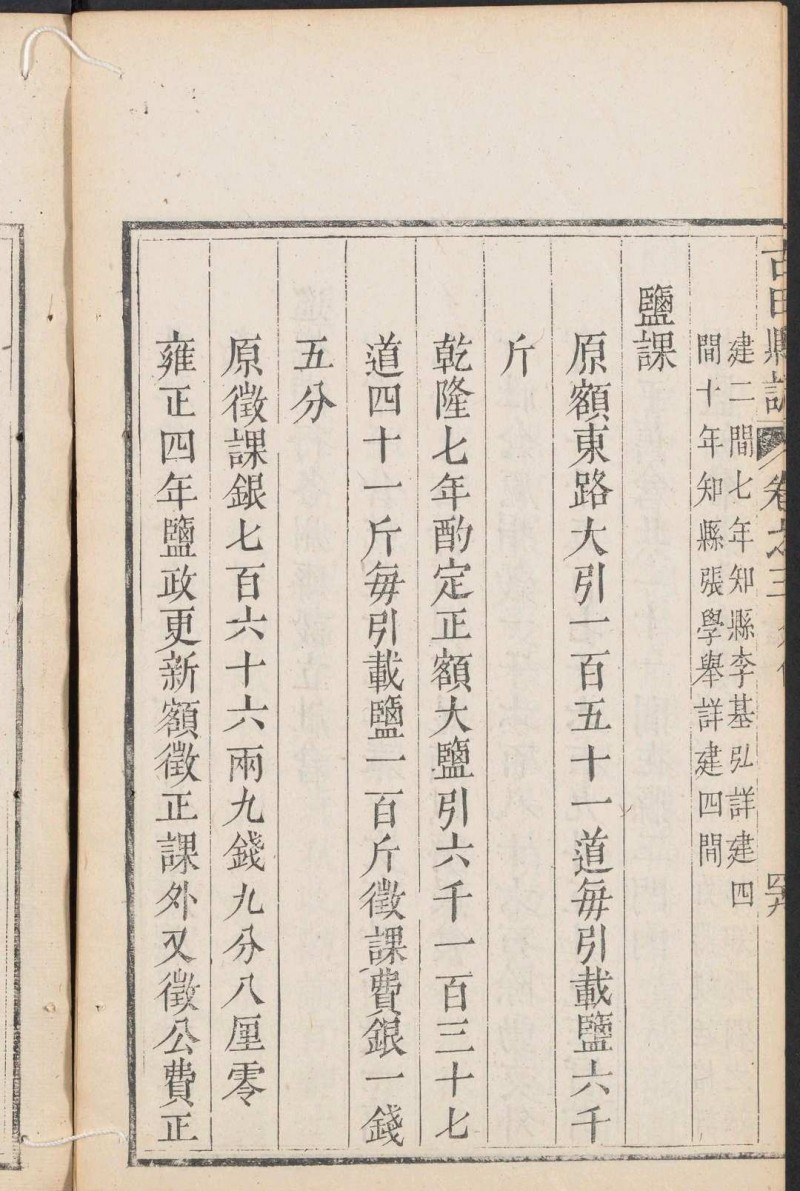 古田縣誌 卷之三
建二間七年知縣李基弘詳建四
間十年知縣張學舉詳建四間
鹽課
原額東路大引一百五十一道每引載鹽六千
斤
乾隆七年酌定正額大鹽引六千一百三十七
道四十一斤每引載鹽一百斤徵課費銀一錢
五分
原徵課銀七百六十六兩九錢九分八厘零
雍正四年鹽政更新額徵正課外又徵公費正